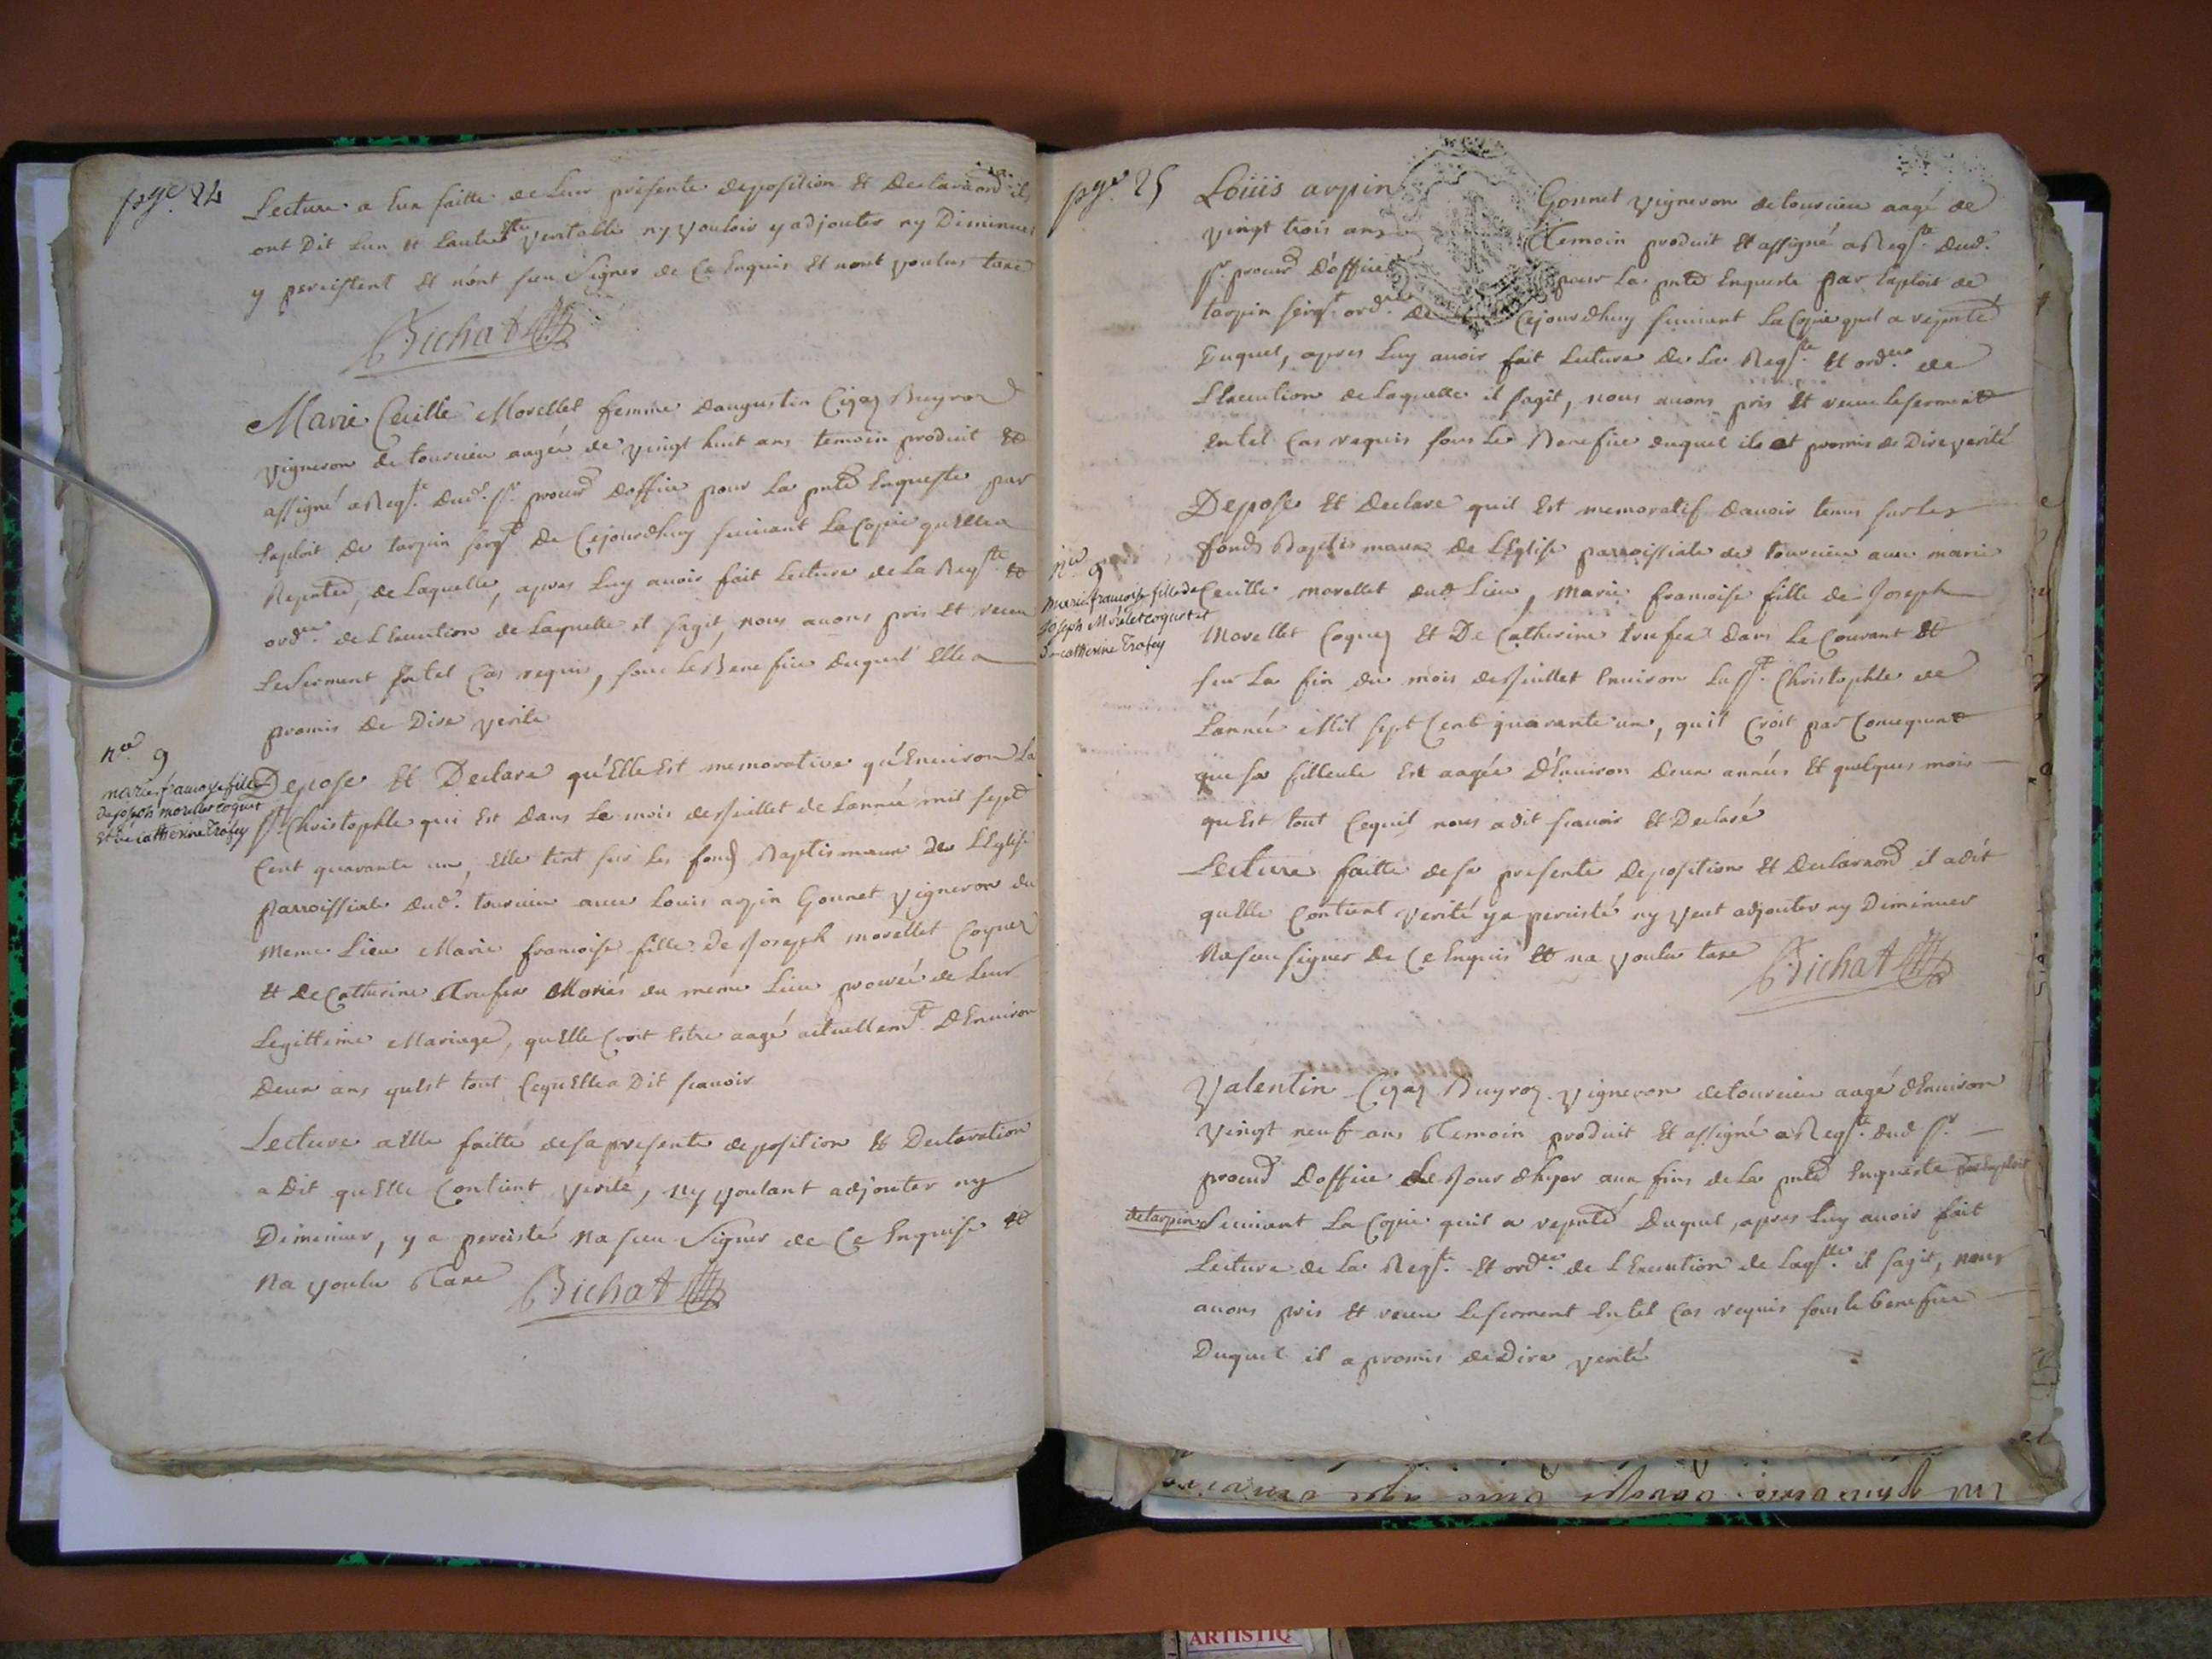 pge. 24
Lecture a Eux faitte de Leur présente deposition Et Declaraōn ils
ont Dit Lun Et Lautre Veritable ny Vouloir y adjouter ny Diminuer
y persistent Et n'ont sceu Signer de Ce Enquis Et n'ont voulus taxe
Bichat
Marie Ceuille Morellet femme daugustin Cizaz Buyroz
vigneron de tourcieu aagée de vingt huit ans temoin produit Et
assigné a Reqste. Dud. Sr. procur. Doffice pour La pnte Enqueste par
Exploit de tarpin sergt De Cejourdhuy suiuant La Copie quElle a
Reputée, de Laquelle, apres Luy auoir fait Lecture de La Reqste. Et
ordce. de LExecution de Laquelle il sagit, nous auons pris Et receu
LeSerment En tel Cas requis, sous Le Benefice Duquel Elle a
promis de Dire verite
no. 9
marie francoise fille
de joseph morellet coquet
et de catherine Trofey
Depose Et Declare qu'Elle Est memorative qu'Enuiron La
St. Christophle qui Est dans Le mois de Juillet de Lannée mil sept
Cent quarante un, Elle tint sur Les fonds Baptismaux De LEglise
parroissiale dud. tourcieu auec Louis arpin Gonnet Vigneron du
meme Lieu Marie francoise fille de Joseph morellet Coquez
Et De Catherine Mariés du meme Lieu procreé de Leur
Legittime Mariage, quElle Croit Estre aagé actuellemt. DEnuiron
Deux ans quEst tout CequElle a Dit scauoir
Lecture a Elle faitte desa presente deposition Et Declaration
a Dit quElle Contient Verité, ny Voulant adjouter ny
Diminuer, y a persisté Na sceu Signer de Ce Enquise Et
Na voulu Taxe Bichat
pge. 25
Loüis arpin Gonnet vigneron de tourcieu aagé de
vingt trois ans Temoin produit Et assigné a Reqste. Dud.
Sr. procur. D'office pour La pnte Enqueste par Exploit de
tarpin sergt. ordre. de Cejourdhuy suiuant La Copie quil a reputé
Duquel, apres Luy auoir fait Lecture de La Reqste. Et ordce. de
LExecution de Laquelle il sagit, nous auons pris Et receu Leserment
En tel Cas requis sous Le Benefice duquel il promis de Dire verité
Depose Et Declare quil Est memoratif dauoir tenus sur Les
fonds Baptismaux de LEglise parroissiale de tourcieu auec marie
no. 9
marie francoise fille de
joseph Morelet coquet et
de catherine Trofey
Ceuille morellet dud Lieu, Marie francoise fille de Joseph
Morellet Coquez Et De Catherine dans Le Courant Et
sur La fin du mois deJuillet Enuiron La St. Christophle de
Lannée Mil sept Cent quarante un, quil Croit par Consequent
que sa filleule Est aagée dEnuiron deux années Et quelques mois
quEst tout Cequil nous a dit scauoir Et Declaré
Lecture faitte de sa presente deposition Et Declaraōn il a dit
quElle Contient Verité y a persisté ny Veut adjouter ny Diminuer
Na sceu signer de Ce Enquis Et na voulu taxe Bichat
Valentin Cizaz Buyroz Vigneron de tourcieu aagé dEnuiron
Vingt neuf ans Temoin produit Et assigné a Reqste. dud Sr.
procur. Doffice Le Jour dhyer aux fins de La pnte Enqueste par Exploit
de tarpin Suiuant La Copie quil a reputé Duquel, apres Luy auoir fait
Lecture de La Reqste. Et ordce. de LExecution de Laqlle. il sagit, nous
auons pris Et receu Leserment En tel Cas requis sous le benefice
Duquel il a promis de Dire verité
ARTISTIQ